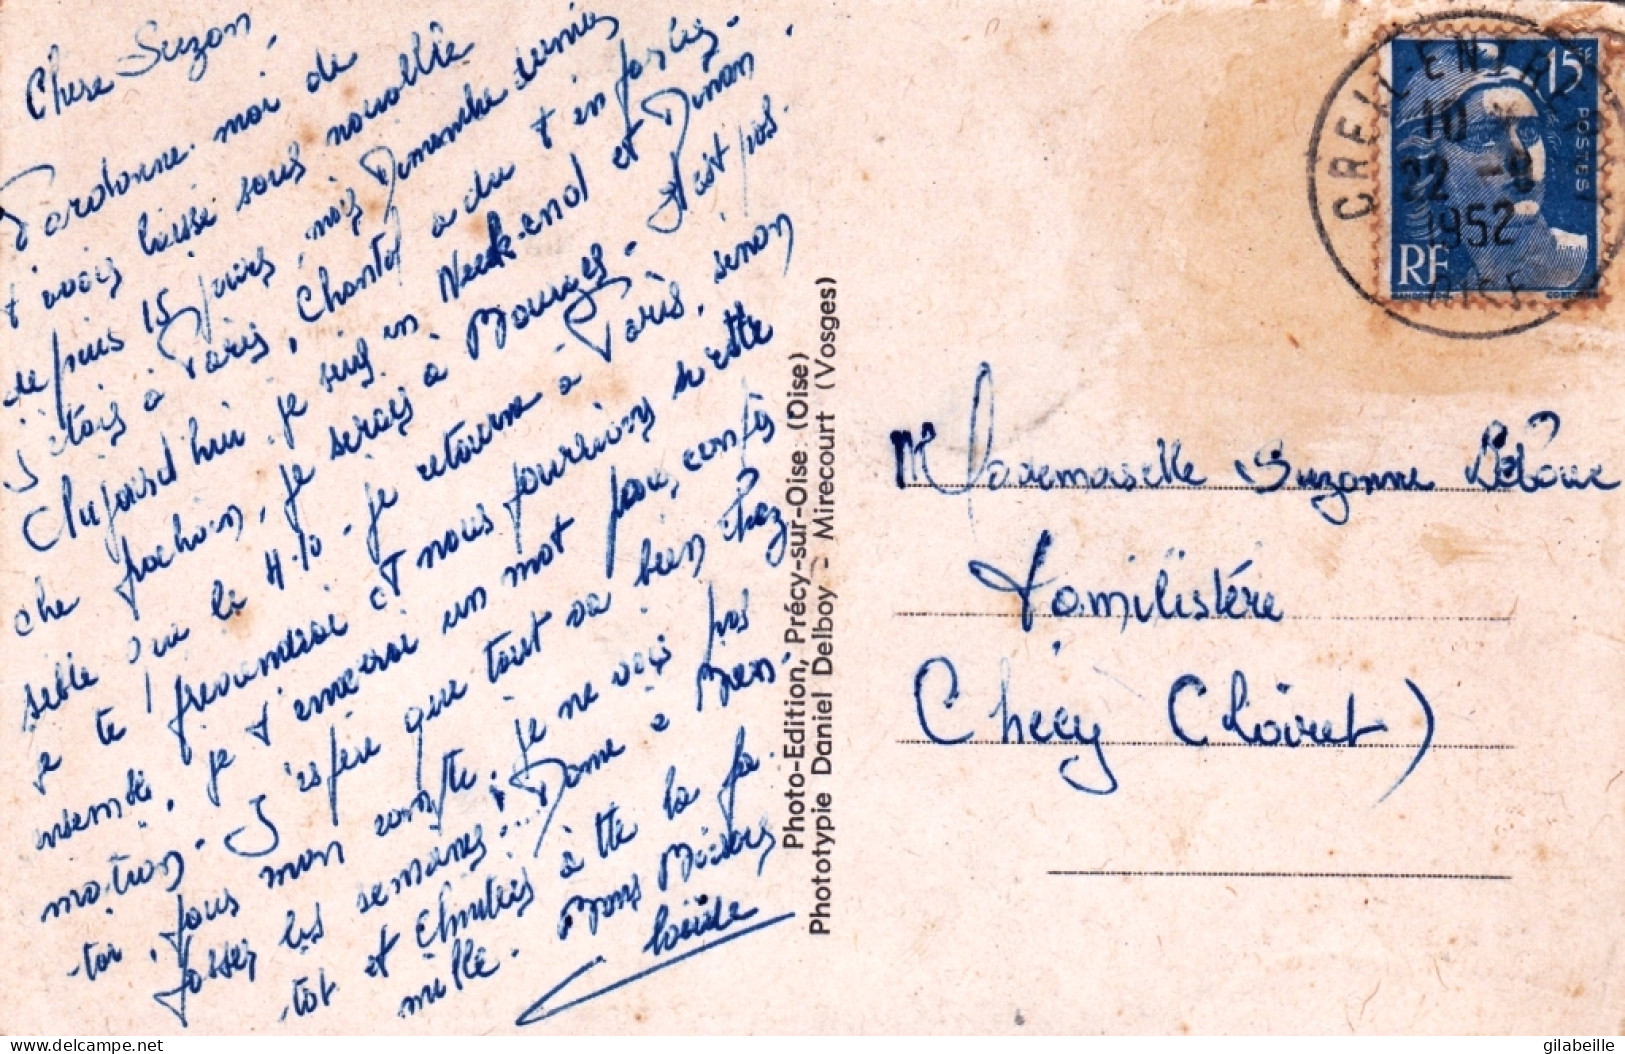 Chère Suzon,
Pardonne-moi de
t'avoir laissé sans nouvelle
depuis 15 jours, mais Dimanche dernier
j'étais à Paris, Chantal a du t'en parler.
Aujourd'hui je suis en Week-end et Diman-
che prochain, je serais à Bourges. Il est pos-
sible que le 4-10 je retourne à Paris, sinon
je te préviendrai et nous fournirons cette
ensemble, je t'enverrai un mot pour confir-
mation. J'espère que tout va bien chez
toi, pour mon compte, je ne vois pas
passer les semaines... Donne à
tôt et Amitiés à tte la fa-
mille. Bons Baisers
Claude
Photo-Edition, Précy-sur-Oise (Oise)
Phototypie Daniel Delboy - Mirecourt (Vosges)
CREIL-ENTREPT
10 *
22 -9
1952
OISE
15F
POSTES
RF
Mademoiselle Suzanne
Familistère
Chécy (Loiret)
delcampe.net
gilabeille